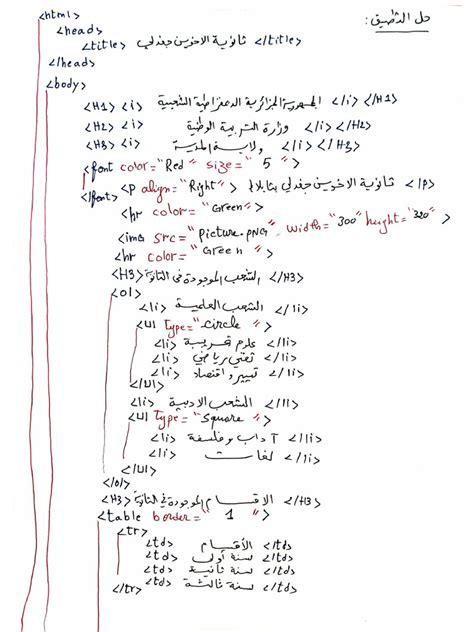 حل التطبيق:
<html>
<head>
<title> ثانوية الاخوين جغدلي </title>
</head>
<body>
<H1> <i> الجمهورية الجزائرية الديمقراطية الشعبية </i> </H1>
<H2> <i> وزارة التربية الوطنية </i> </H2>
<H3> <i> ولاية المدية </i> </H3>
<font color="Red" size="5">
</font> <p align="Right"> ثانوية الاخوين جغدلي </p>
<hr color="Green">
<img src="picture.PNG" width="300" height="320">
<hr color="Green">
<H3> الشعب الموجودة في الثانوية </H3>
<ol>
<li> الشعب العلمية </li>
<Ul type="circle">
<li> علوم تجريبية </li>
<li> تقني رياضي </li>
<li> تسيير واقتصاد </li>
</Ul>
<li> الشعب الادبية </li>
<Ul type="square">
<li> آداب وفلسفة </li>
<li> لغات </li>
</Ul>
</ol>
<H3> الاقسام الموجودة في الثانوية </H3>
<table border="1">
<tr>
<td> الأقسام </td>
<td> سنة أولى </td>
<td> سنة ثانية </td>
</tr> <td> سنة ثالثة </td>